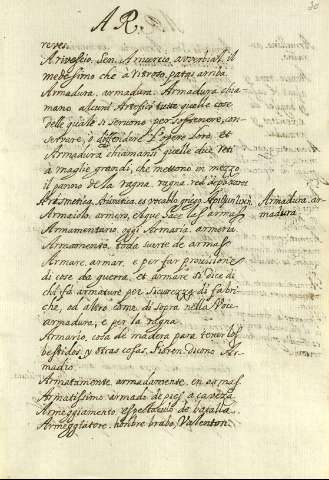 AR.
30
reves.
Arivescio. Sen. Arivercio, avverbial. il
medessimo che à ritroso, patas arriba.
Armadura, armadura. Armadura chia-
mano alcuni Artefici tutte quelle cose
delle quali si servono per sostenere, con-
servare, ò diffendere l'opere loro. et
Armadura chiamansi quelle due reti
à maglie grandi, che mettono in mezzo
il panno de la ragna. ragna red
Armadura. ar-
madura
Armaiolo. armero, el que
Armamentario, oggi Armaria. armeria
Armamento. toda suerte de armas.
Armare. armar, et per far provisione
di cose da guerra, et armare si dice di
chi fà armature per sicurezza di fabri-
che, od altro come di sopra nella Voce
armadura, e per la ragna.
Armario. cosa de madera para tener los
bestidos, y otras cosas. Fioren. dicono Ar-
madio.
Armatamente. armadamente, en armas.
Armatissimo. armado de pies a caveza.
Armeggiamento. espectaculo de batalla.
Armeggiatore. honbre brabo, Valenton.